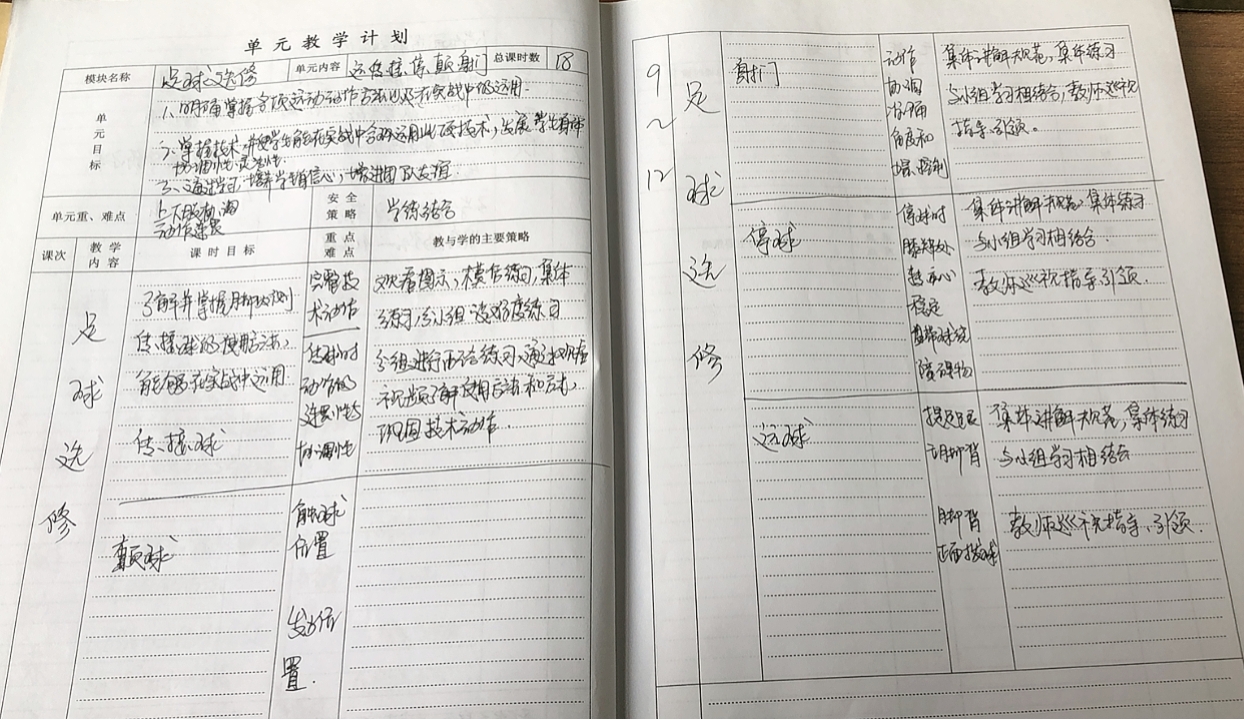 单元教学计划
模块名称 足球选修 单元内容 运、传、接、停、颠、射门 总课时数 18
单元目标
1、明确掌握各项运动动作方法以及在实战中的运用.
2、掌握技术,并使学生能在实战中合理运用此项技术,发展学生身体
协调性、灵活性.
3、通过学习,增养学生自信心,增进团队友谊.
单元重、难点 上下肢协调
动作连贯
安全策略 学练结合
课次 教学内容 课时目标 重点难点 教与学的主要策略
足球选修
了解并掌握用脚内侧
传、接球的使用方法,
能够在实战中运用
传、接球
完整技
术动作
传球时
动作的
连贯性与
协调性
观看图示,模仿练习,集体
练习,分小组设难度练习
分组进行两人结练习,通过观看
视频了解使用方法和方式,
巩固技术动作.
颠球
触球
位置
发力位
置.
9~12
足球选修
射门
动作
协调
准确
角度和
集体讲解规范,集体练习
与小组学习相结合,教师巡视
指导、引领。
停球
停球时
重心
稳定
障碍物
集体讲解规范,集体练习
与小组学习相结合.
教师巡视指导、引领.
运球
提足跟
用脚背
用脚背
正面拨球
集体讲解规范,集体练习
与小组学习相结合
教师巡视指导、引领.